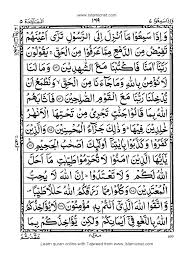 www.islamicnet.com
وَاِذَا سَمِعُوْا ٧
وَ اِذَا سَمِعُوْا مَاۤ اُنْزِلَ اِلَى الرَّسُوْلِ تَرٰۤى اَعْيُنَهُمْ
تَفِيْضُ مِنَ الدَّمْعِ مِمَّا عَرَفُوْا مِنَ الْحَقِّ ۚ يَقُوْلُوْنَ
رَبَّنَاۤ اٰمَنَّا فَاكْتُبْنَا مَعَ الشّٰهِدِيْنَ ۝ وَمَا لَنَا
لَا نُؤْمِنُ بِاللّٰهِ وَمَا جَآءَنَا مِنَ الْحَقِّ ۙ وَنَطْمَعُ اَنْ
يُّدْخِلَنَا رَبُّنَا مَعَ الْقَوْمِ الصّٰلِحِيْنَ ۝ فَاَثَابَهُمُ
اللّٰهُ بِمَا قَالُوْا جَنّٰتٍ تَجْرِيْ مِنْ تَحْتِهَا الْاَنْهٰرُ
خٰلِدِيْنَ فِيْهَا ؕ وَذٰلِكَ جَزَآءُ الْمُحْسِنِيْنَ ۝ وَالَّذِيْنَ
كَفَرُوْا وَكَذَّبُوْا بِاٰيٰتِنَاۤ اُولٰٓئِكَ اَصْحٰبُ الْجَحِيْمِ ۝
يٰۤاَيُّهَا الَّذِيْنَ اٰمَنُوْا لَا تُحَرِّمُوْا طَيِّبٰتِ مَاۤ اَحَلَّ
اللّٰهُ لَكُمْ وَلَا تَعْتَدُوْا ؕ اِنَّ اللّٰهَ لَا يُحِبُّ
الْمُعْتَدِيْنَ ۝ وَكُلُوْا مِمَّا رَزَقَكُمُ اللّٰهُ حَلٰلًا طَيِّبًا
وَّاتَّقُوا اللّٰهَ الَّذِيْۤ اَنْتُمْ بِهٖ مُؤْمِنُوْنَ ۝ لَا يُؤَاخِذُكُمُ
اللّٰهُ بِاللَّغْوِ فِيْۤ اَيْمَانِكُمْ وَلٰكِنْ يُّؤَاخِذُكُمْ بِمَا
Learn quran online with Tajweed from www.islamicnet.com